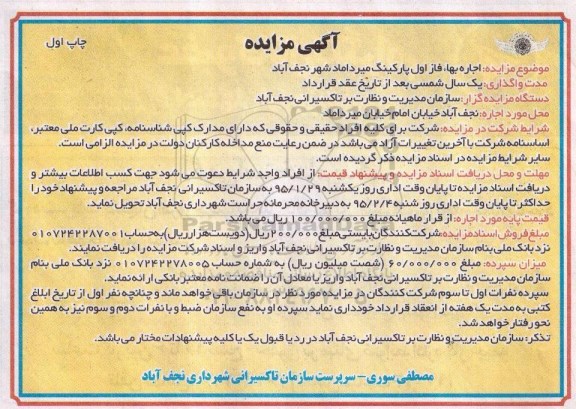 آگهی مزایده
چاپ اول
موضوع مزایده: اجاره بهاء فاز اول پارکینگ میرداماد شهر نجف آباد
مدت واگذاری: یک سال شمسی بعد از تاریخ عقد قرارداد
دستگاه مزایده گزار: سازمان مدیریت و نظارت بر تاکسیرانی نجف آباد
محل مورد اجاره: نجف آباد خیابان امام خیابان میرداماد
شرایط شرکت در مزایده: شرکت برای کلیه افراد حقیقی و حقوقی که دارای مدارک کپی شناسنامه، کپی کارت ملی معتبر،
اساسنامه شرکت با آخرین تغییرات آزاد می باشد در ضمن رعایت منع مداخله کارکنان دولت در مزایده الزامی است.
سایر شرایط مزایده در اسناد مزایده ذکر گردیده است.
مهلت و محل دریافت اسناد مزایده و پیشنهاد قیمت: از افراد واجد شرایط دعوت می شود جهت کسب اطلاعات بیشتر و
دریافت اسناد مزایده تا پایان وقت اداری روز یکشنبه ۹۵/۱/۲۹ به سازمان تاکسیرانی نجف آباد مراجعه و پیشنهاد خود را
حداکثر تا پایان وقت اداری روز شنبه ۹۵/۲/۴ به دبیرخانه محرمانه حراست شهرداری نجف آباد تحویل نماید.
قیمت پایه مورد اجاره: از قرار ماهیانه مبلغ ۱۰۰/۰۰۰/۰۰۰ ریال می باشد.
مبلغ فروش اسناد مزایده: شرکت کنندگان بایستی مبلغ ۲۰۰/۰۰۰ ریال (دویست هزار ریال) به حساب ۰۱۰۷۲۴۲۲۸۷۰۰۱
نزد بانک ملی بنام سازمان مدیریت و نظارت بر تاکسیرانی نجف آباد واریز و اسناد شرکت مزایده را دریافت نمایند.
میزان سپرده: مبلغ ۶۰/۰۰۰/۰۰۰ (شصت میلیون ریال) به شماره حساب ۰۱۰۷۲۴۲۲۷۸۰۰۵ نزد بانک ملی بنام
سازمان مدیریت و نظارت بر تاکسیرانی نجف آباد واریز یا معادل آن را ضمانت نامه معتبر بانکی ارائه نماید.
سپرده نفرات اول تا سوم شرکت کنندگان در مزایده مورد نظر در سازمان باقی خواهد ماند و چنانچه نفر اول از تاریخ ابلاغ
کتبی به مدت یک هفته از انعقاد قرارداد خودداری نماید سپرده او به نفع سازمان ضبط و با نفرات دوم و سوم نیز به همین
نحو رفتار خواهد شد.
تذکر: سازمان مدیریت و نظارت بر تاکسیرانی نجف آباد در رد یا قبول یک یا کلیه پیشنهادات مختار می باشد.
مصطفی سوری - سرپرست سازمان تاکسیرانی شهرداری نجف آباد